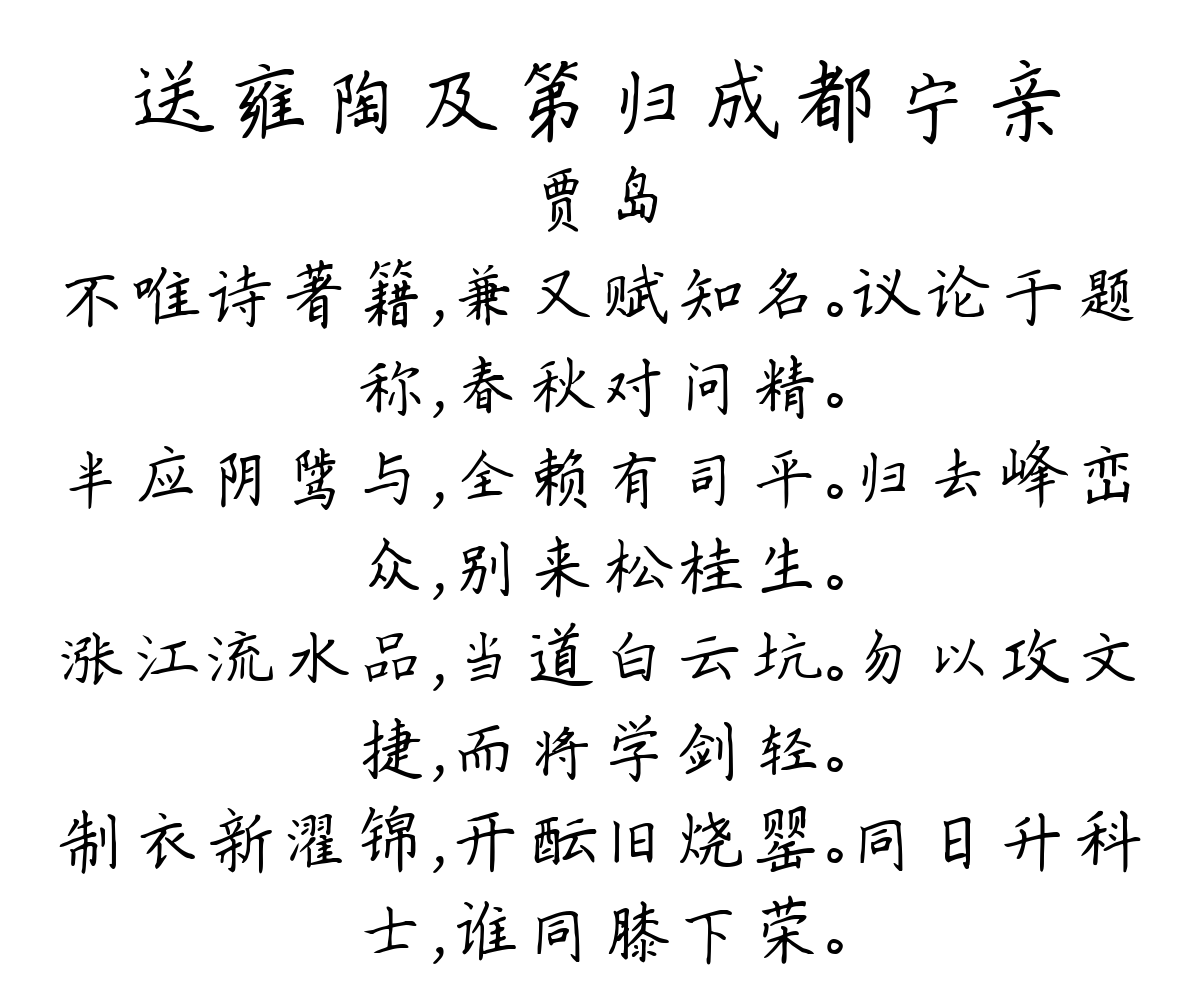 送雍陶及第归成都宁亲
贾岛
不唯诗著籍,兼又赋知名。议论于题
称,春秋对问精。
半应阴骘与,全赖有司平。归去峰峦
众,别来松桂生。
涨江流水品,当道白云坑。勿以攻文
捷,而将学剑轻。
制衣新濯锦,开酝旧烧罂。同日升科
士,谁同膝下荣。